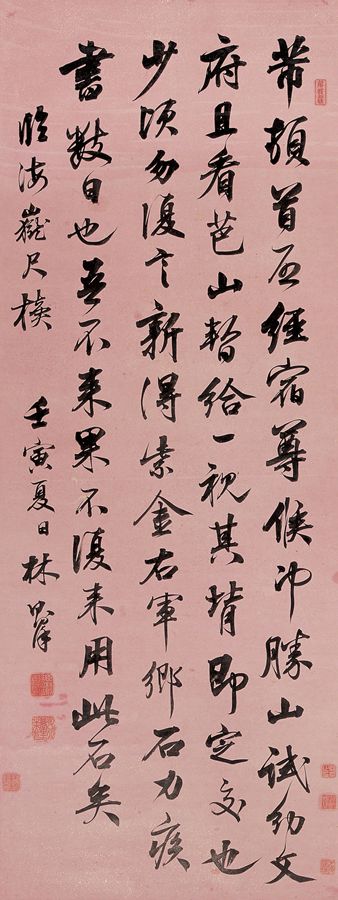 芾頓首再經宿尊候冲勝山試納文
府且看芭山暫給一視其背即定交也
少頃勿復言新得紫金右軍鄉石力疾
書數日也吾不來果不復來用此石矣
臨海嶽尺牘 壬寅夏日林